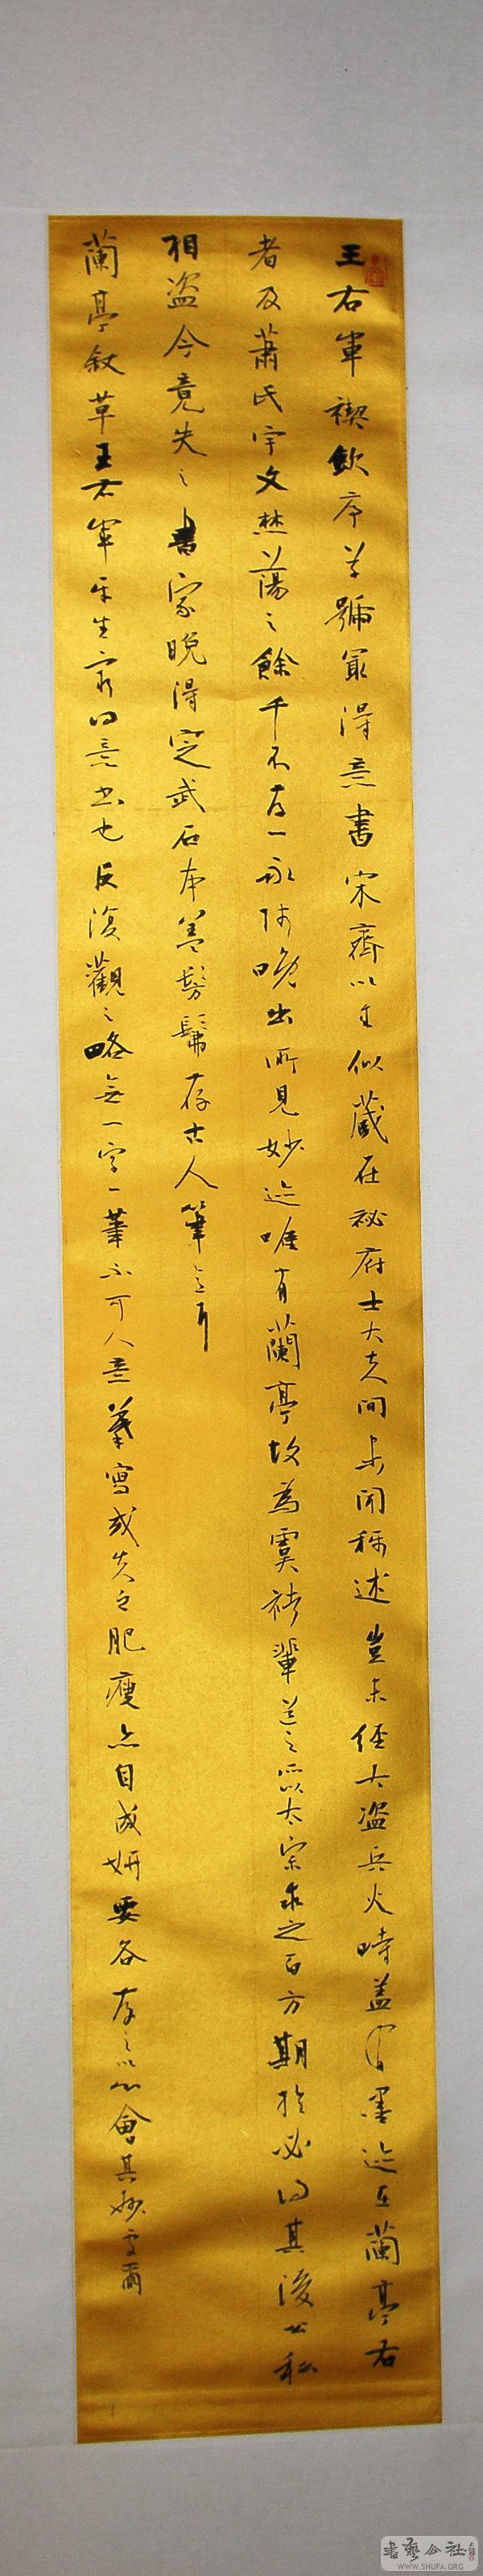 王右軍禊飲序草號最得意書宋齊以來似藏在祕府士大夫間未聞稱述豈未經大盜兵火時蓋有墨迹在蘭亭右
者及蕭氏宇文焚蕩之餘千不存一永師晚出所見妙迹唯有蘭亭故為虞褚輩道之所以太宗求之百方期於必得其後公私
相盜今竟失之書家晚得定武石本蓋髣髴存古人筆意耳
蘭亭敘草王右軍平生最得意書也反復觀之略無一字一筆不可人意摹寫或失之肥瘦亦自成妍要各存之以心會其妙處爾
書藝公社
WWW.SHUFA.ORG